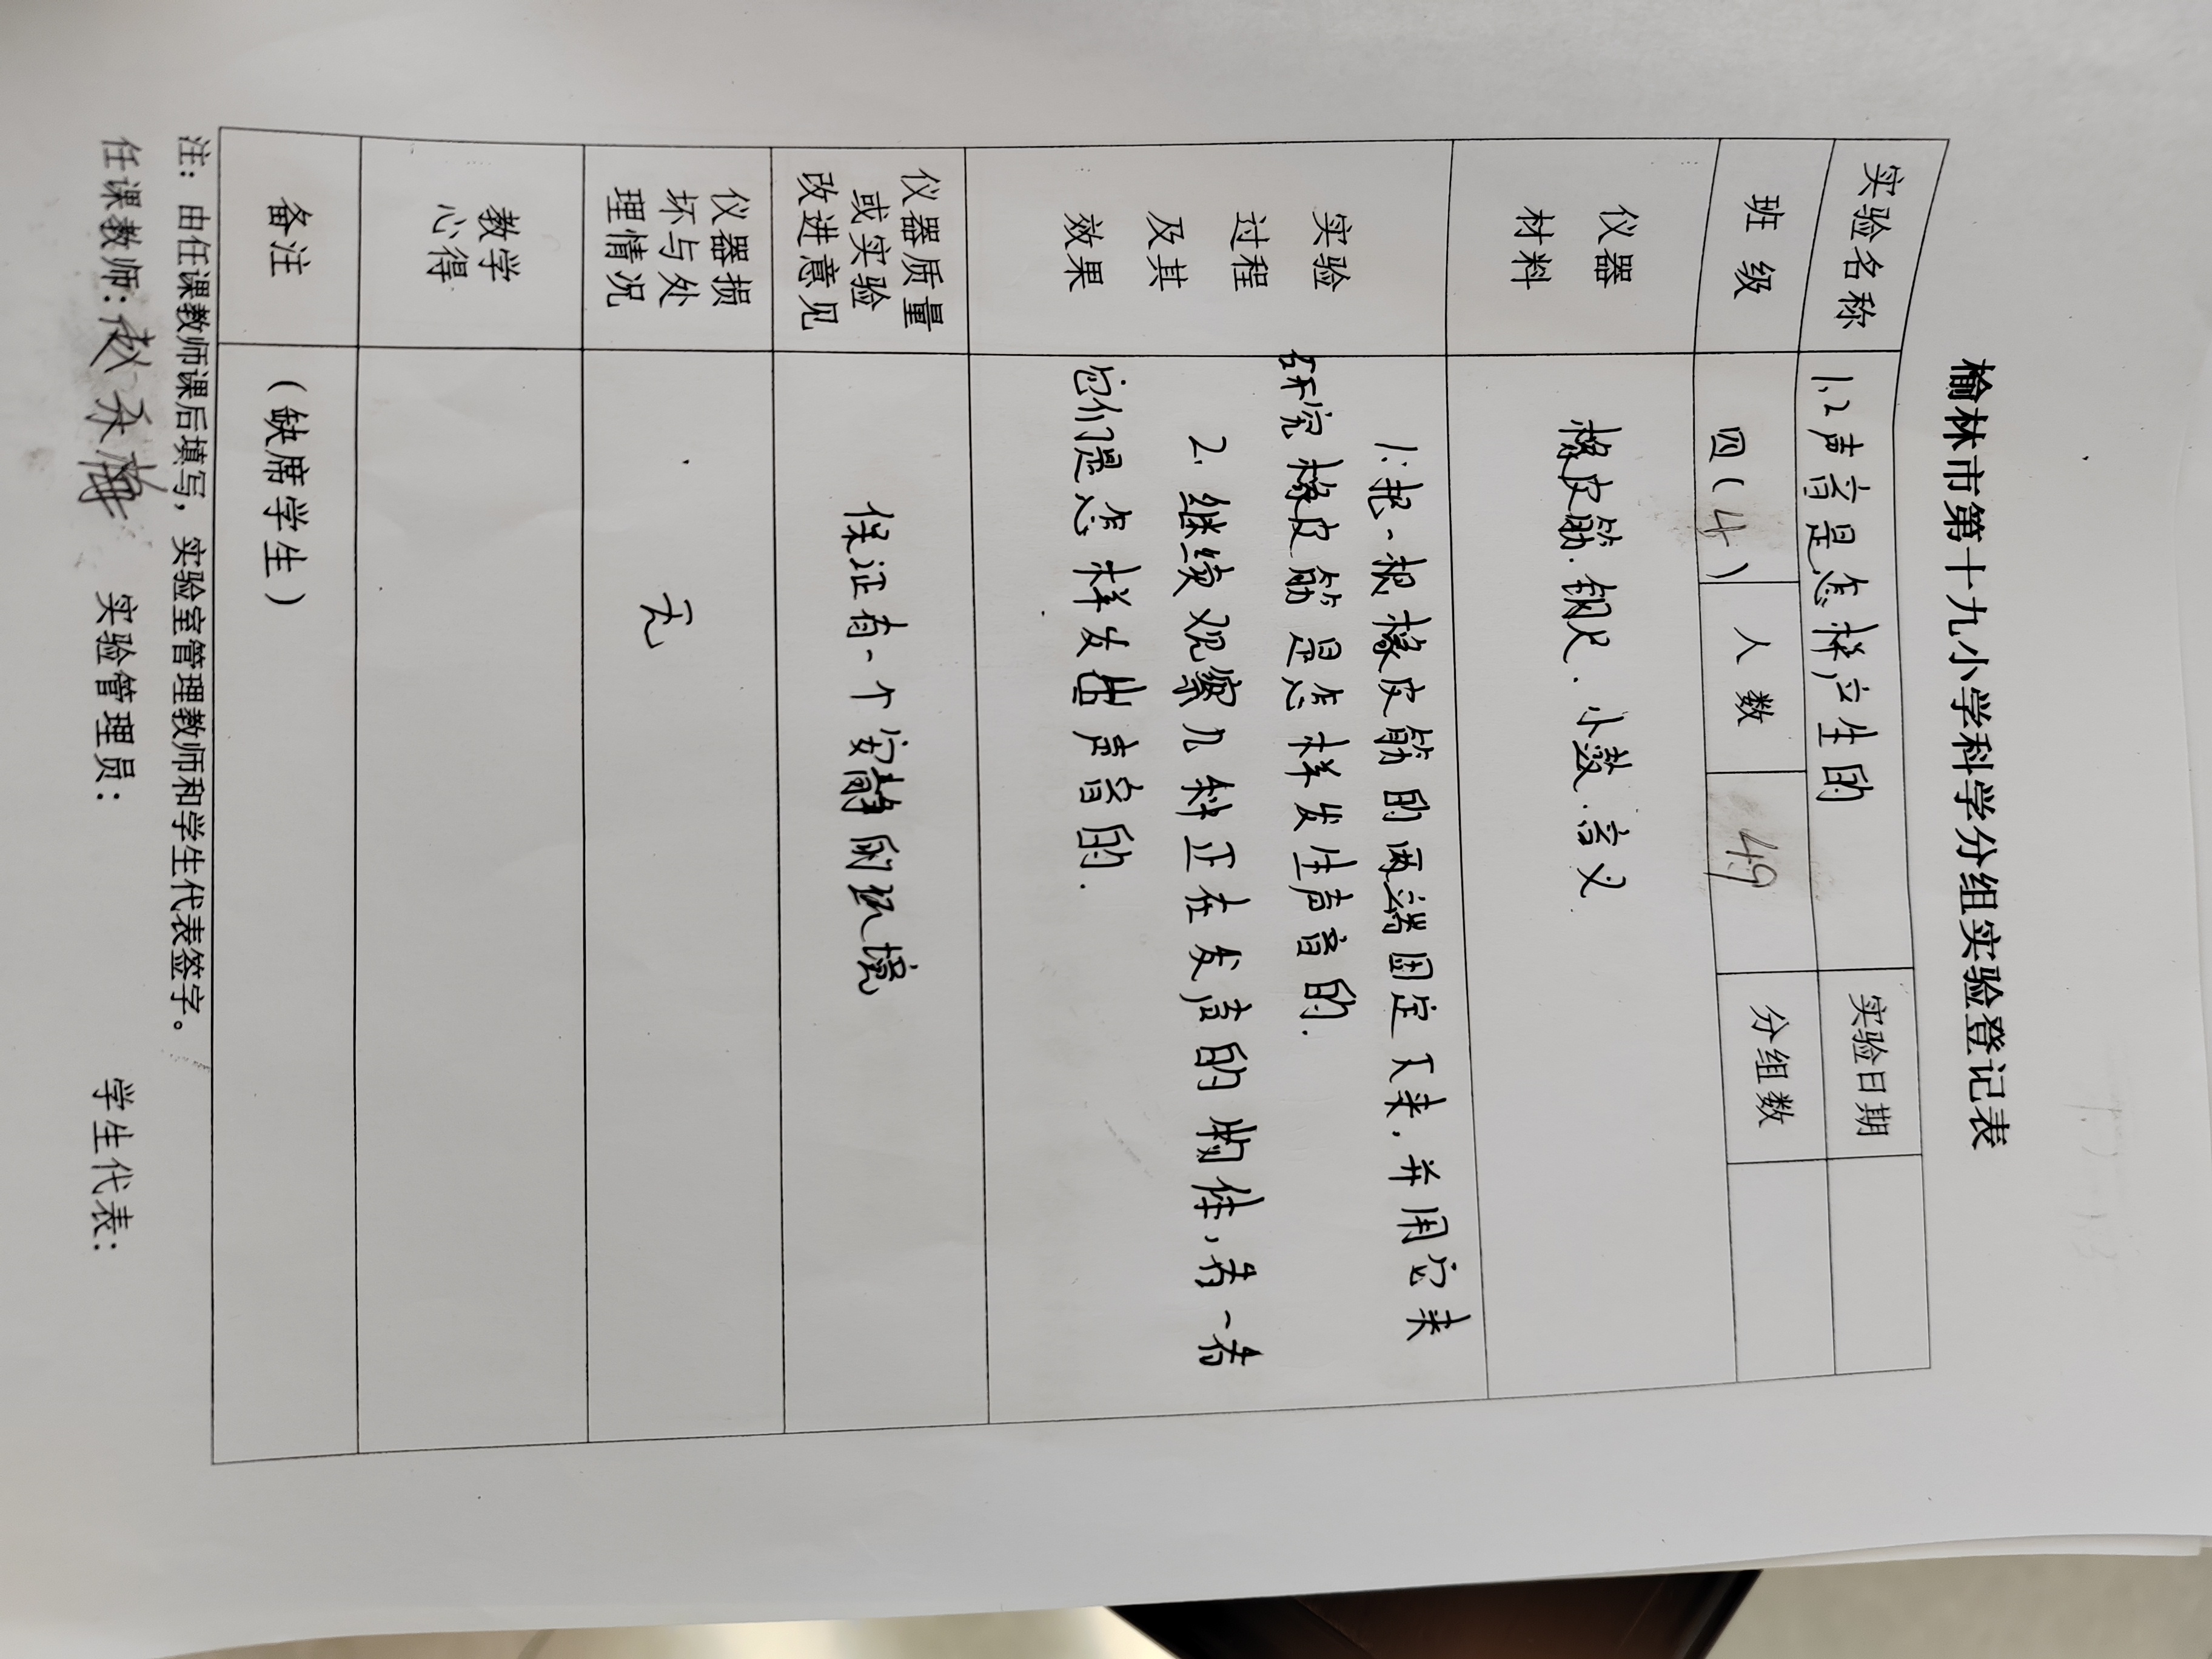 榆林市第十九小学科学分组实验登记表
实验名称 1.2声音是怎样产生的 实验日期
班 级 四(4) 人 数 49 分组数
仪器
材料
橡皮筋.钢尺.小鼓.音叉.
实验
过程
及其
效果
1.把一根橡皮筋的两端固定下来.并用它来
研究橡皮筋是怎样发生声音的.
2.继续观察几种正在发声的物体,看一看
它们是怎样发出声音的.
仪器质量
或实验
改进意见
保证有一个安静的环境
仪器损
坏与处
理情况
无
教学
心得
备注 (缺席学生)
注:由任课教师课后填写,实验室管理教师和学生代表签字。
任课教师: 实验管理员: 学生代表: